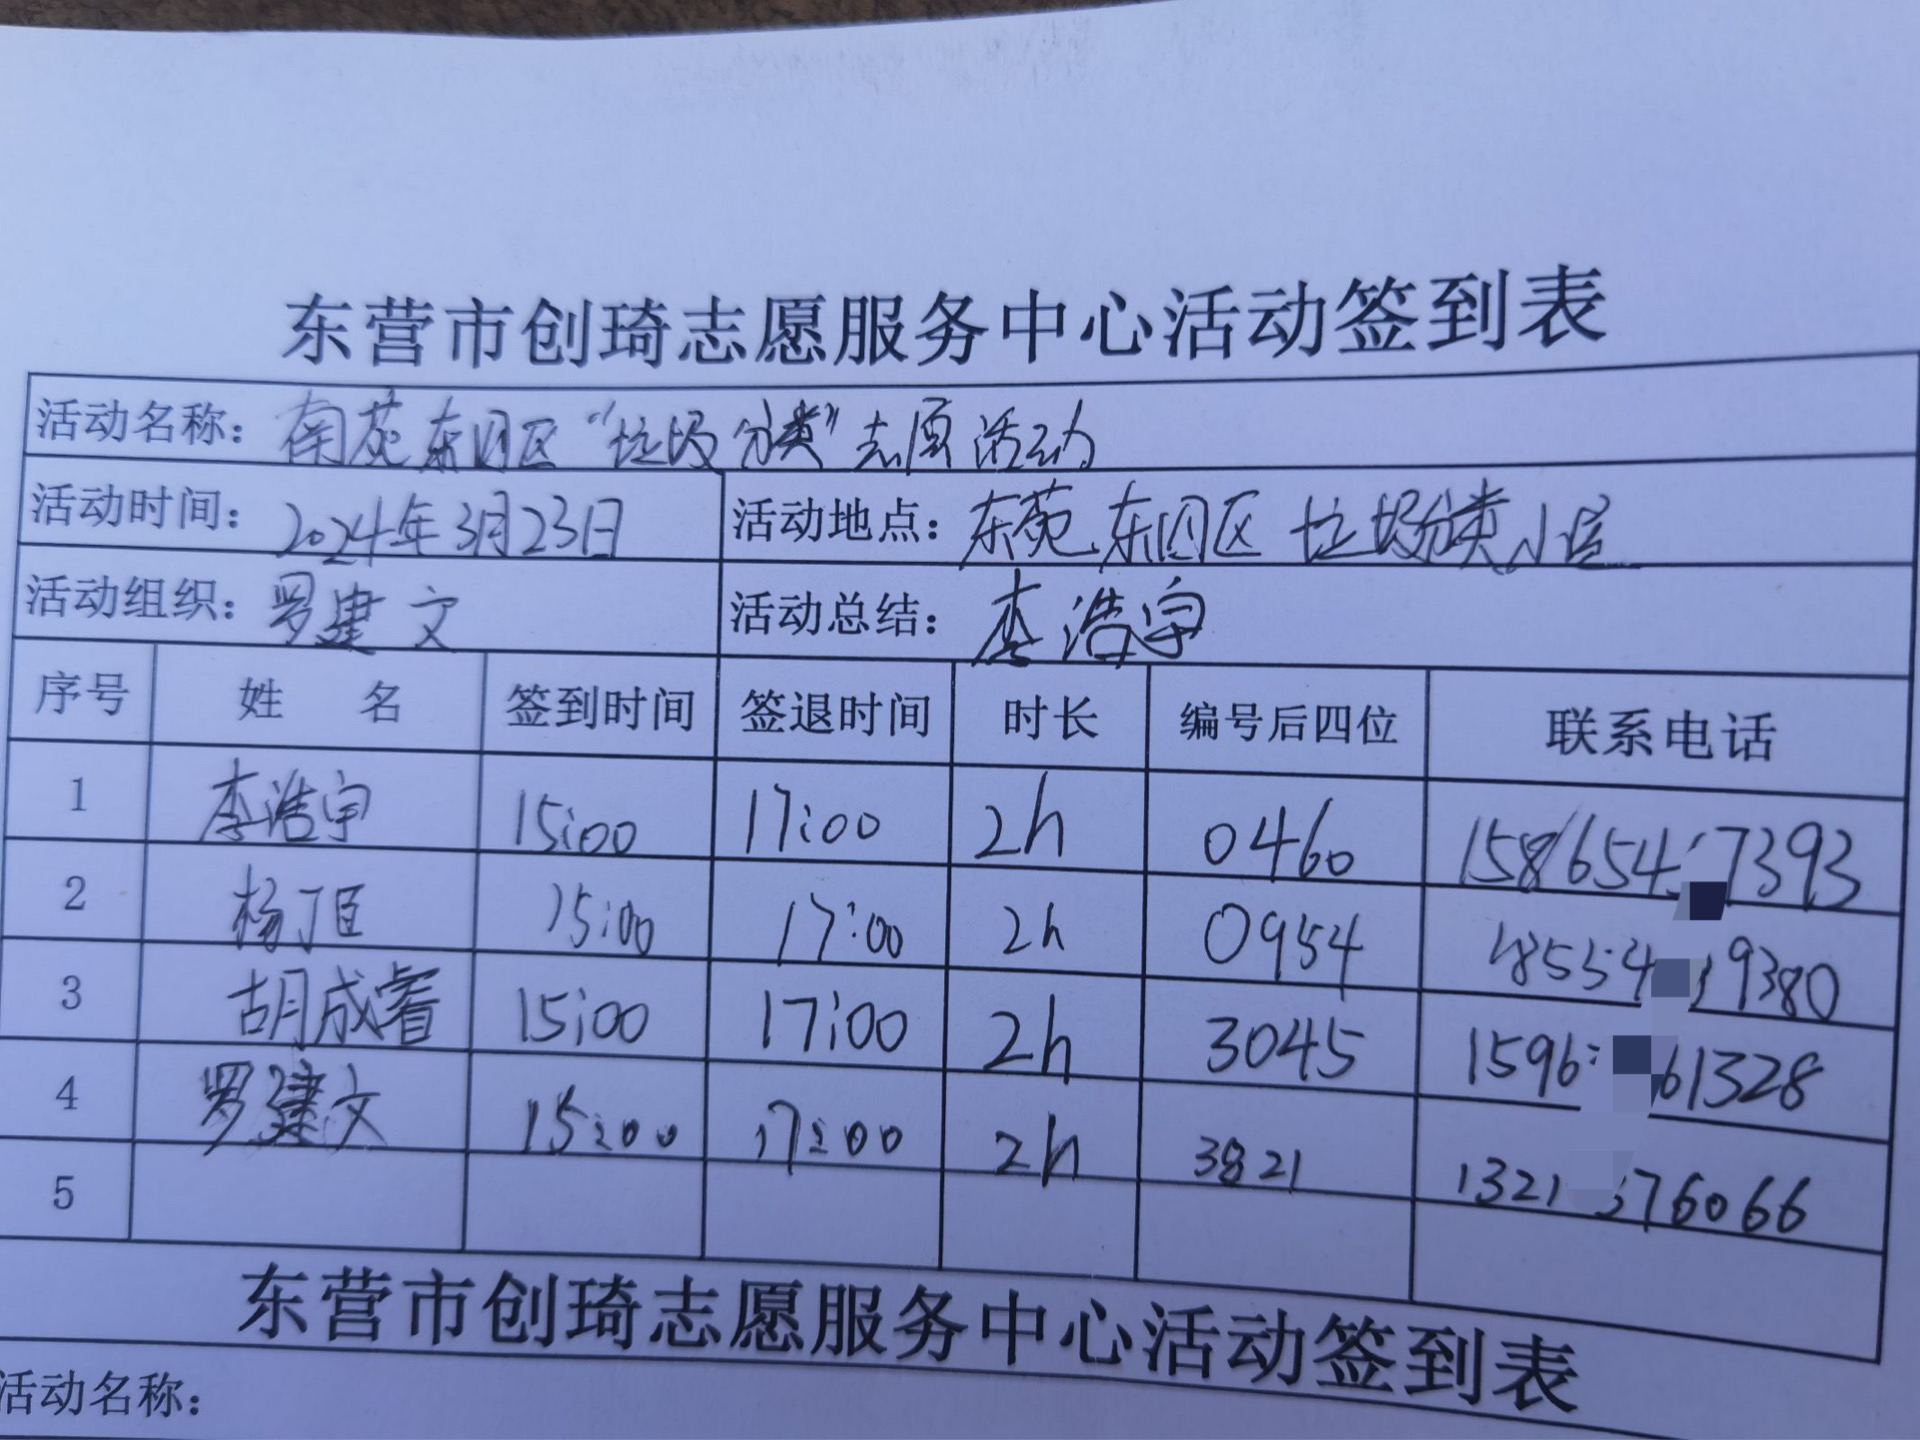 东营市创琦志愿服务中心活动签到表
活动名称：南苑东园区“垃圾分类”志愿活动
活动时间：2024年3月23日 活动地点：东苑东园区垃圾分类小
活动组织：罗建文 活动总结：李浩宇
序号 姓 名 签到时间 签退时间 时长 编号后四位 联系电话
1 李浩宇 15:00 17:00 2h 0460 158654 7393
2 杨 15:00 17:00 2h 0954 18554 9380
3 胡成睿 15:00 17:00 2h 3045 1596 61328
4 罗建文 15:00 17:00 2h 3821 1321 76066
5
东营市创琦志愿服务中心活动签到表
活动名称：